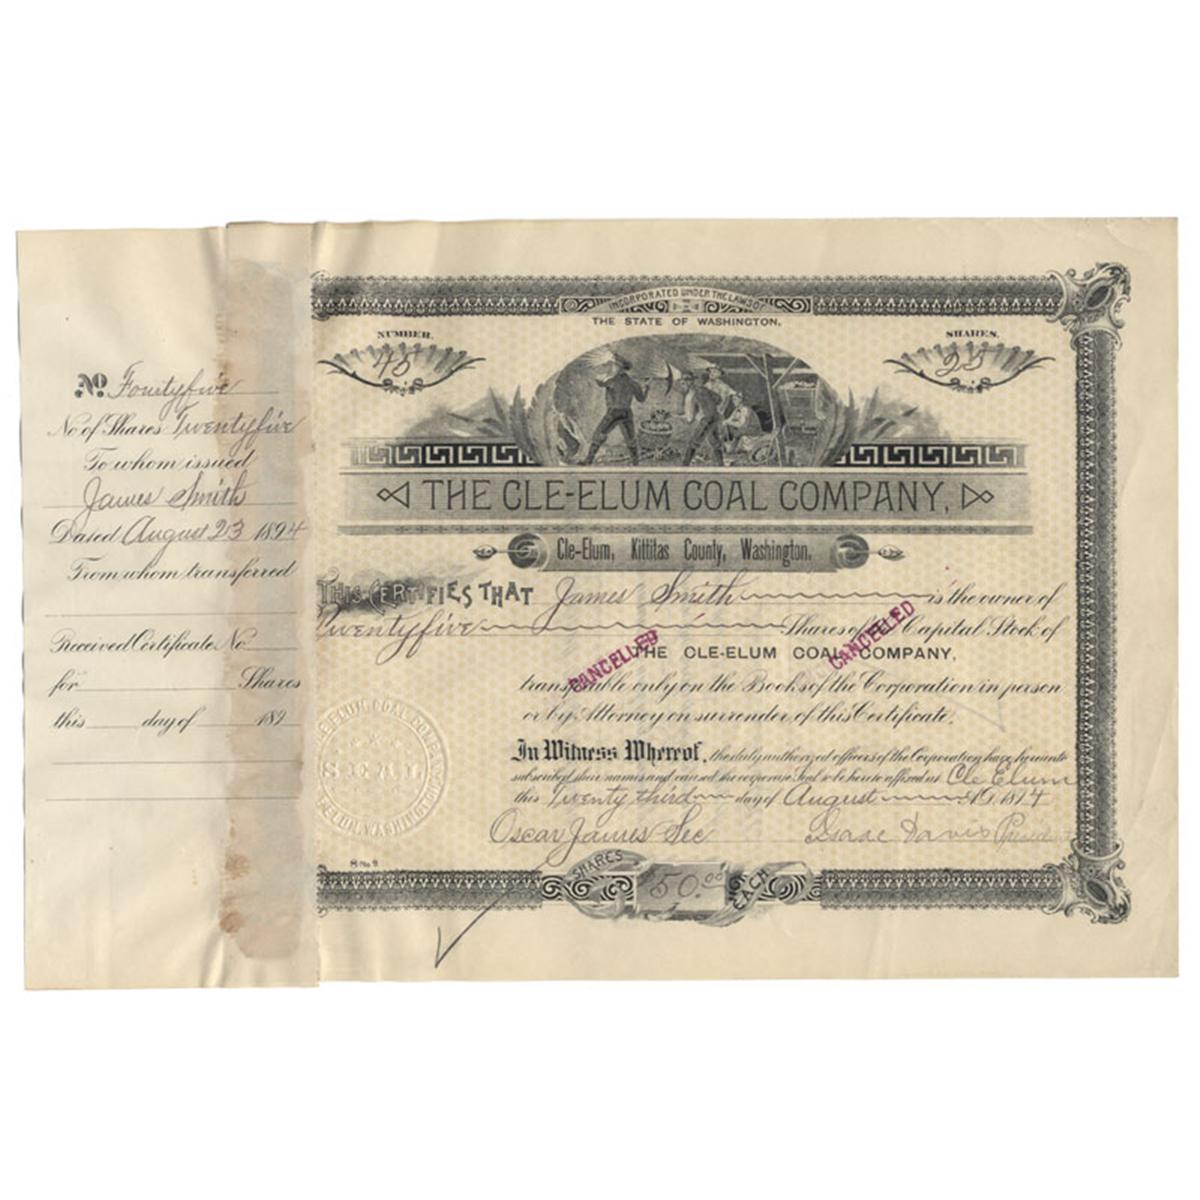 No. Fourtyfive
No of Shares Twentyfive
To whom issued
James Smith
Dated August 23 1894
From whom transferred
Received Certificate No.
for Shares
this day of 189
INCORPORATED UNDER THE LAWS OF
THE STATE OF WASHINGTON.
NUMBER.
45
SHARES.
25
THE CLE-ELUM COAL COMPANY,
Cle-Elum, Kittitas County, Washington.
THIS CERTIFIES THAT James Smith is the owner of
Twentyfive Shares of the Capital Stock of
THE CLE-ELUM COAL COMPANY,
CANCELLED
CANCELLED
transferable only on the Books of the Corporation in person
or by Attorney on surrender of this Certificate.
In Witness Whereof, the duly authorized officers of the Corporation have hereunto
subscribed their names and caused the corporate Seal to be hereto affixed at Cle Elum
this Twenty third day of August A.D. 1894
Oscar James Sec Isaac Davis President
CLE-ELUM COAL COMPANY
SEAL
CLE-ELUM, WASHINGTON
R No 9
SHARES
50.00
EACH